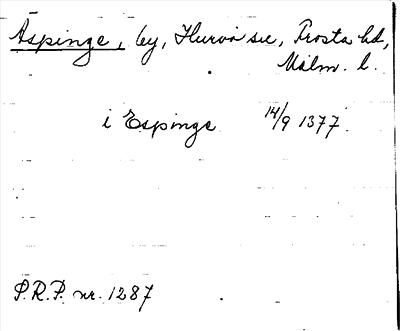 Äspinge, by, Hurva sn, Frosta hd,
Malm. l.
i Espinge 14/9 1377.
P.R.P. nr. 1287